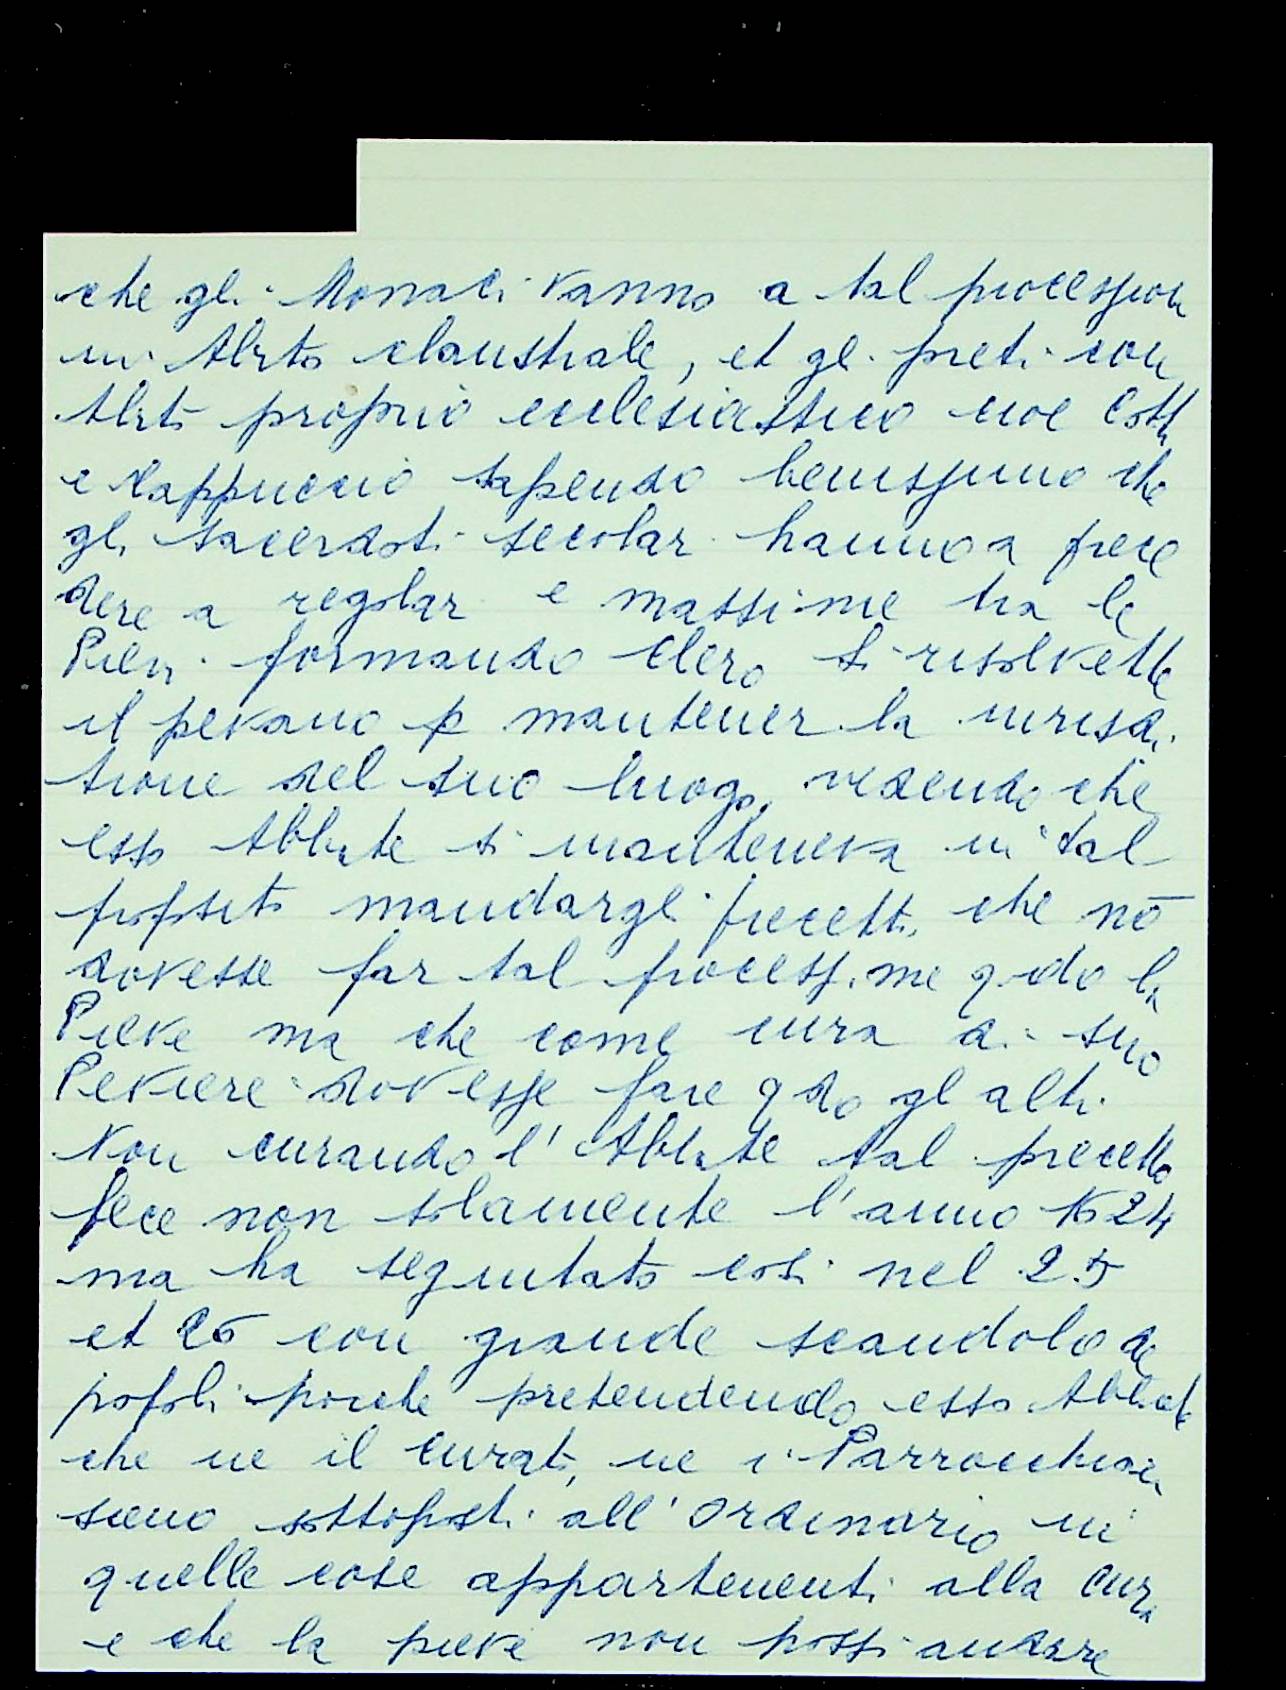 che gli Monaci vanno a tal procession
in Abito claustrale, et gli preti con
Abito proprio ecclesiastico cioe Cotta
e Cappuccio sapendo benissimo che
gli sacerdoti secolari hanno a prece
dere a regolari e massime tra le
Pievi formando Clero si risolvette
il pevano p mantener la iurisdi
tione del suo luogo, vedendo che
esso Abbate si manteneva in tal
proposito mandargli precetti che nō
dovesse far tal processione qdo la
Pieve ma che come cura di suo
Peviere dovesse fare qdo gl altri.
Non curando l'Abbate tal precetto
fece non solamente l'anno 1624
ma ha seguitato così nel 25
et 26 con grande scandolo de
popoli poiche pretendendo esso Abbate
che ne il curato, ne i Parrocchiani
sieno sottoposti all'Ordinario in
quelle cose appartenenti alla Cura
e che la pieve non possi andare